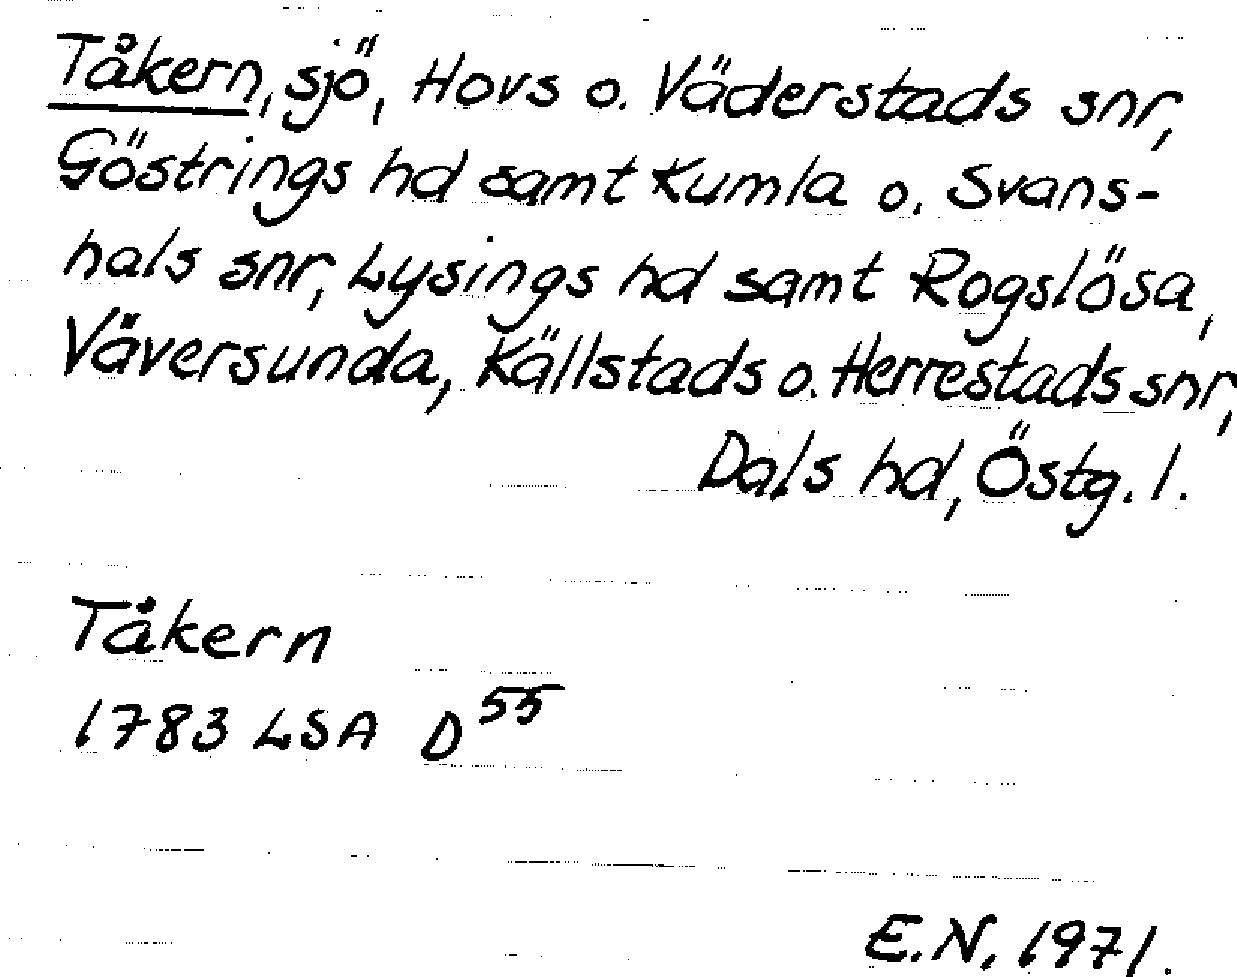 Tåkern, sjö, Hovs o. Väderstads snr,
Göstrings hd samt Kumla o. Svans-
hals snr, Lysings hd samt Rogslösa,
Väversunda, Källstads o. Herrestads snr,
Dals hd, Östg. l.
Tåkern
1783 LSA D 55
E.N. 1971.